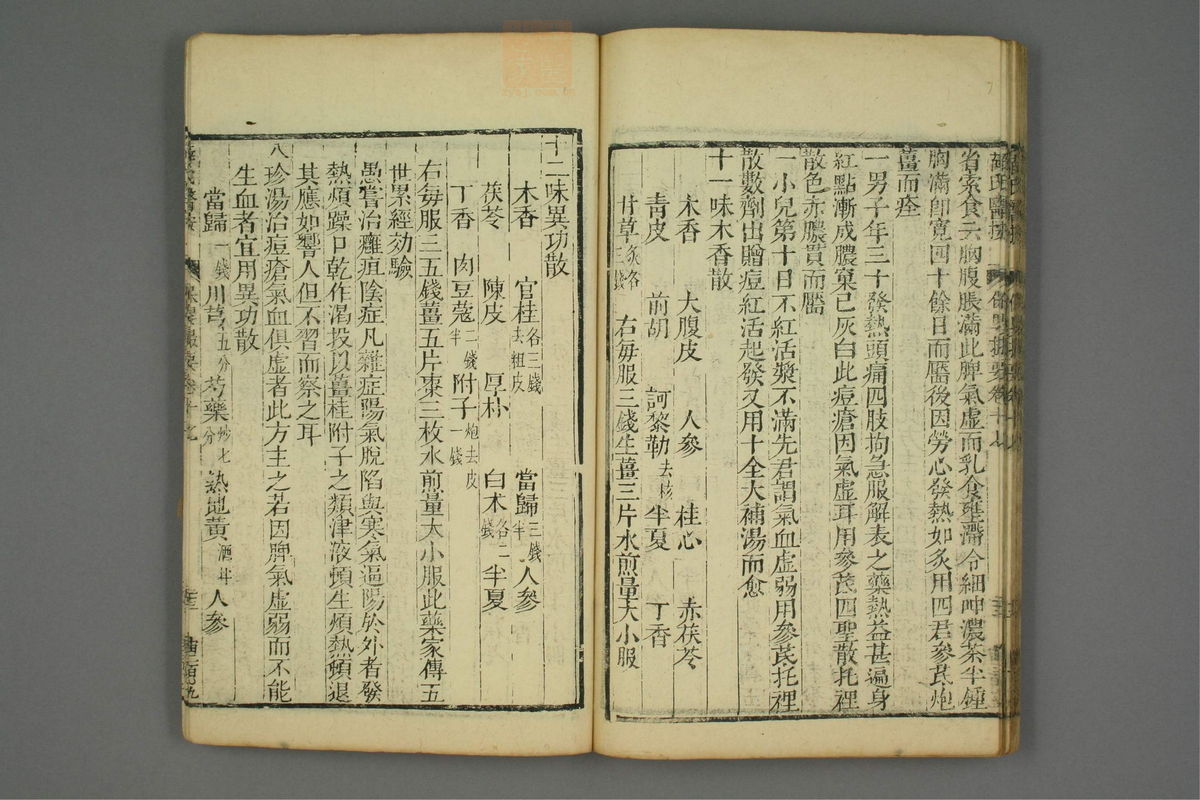 省索食云胸腹脹滿此脾氣虛而乳食壅滯令細呷濃茶半鐘
胸滿即寬四十餘日而靨後因勞心發熱如炙用四君參芪炮
薑而痊
一男子年三十發熱頭痛四肢拘急服解表之藥熱益甚遍身
紅點漸成膿窠已灰白此痘瘡因氣虛耳用參芪四聖散托裡
散色赤膿貫而靨
一小兒第十日不紅活漿不滿先君謂氣血虛弱用參芪托裡
散數劑出贈痘紅活起發又用十全大補湯而愈
十一味木香散
木香 大腹皮 人參 桂心 赤茯苓
青皮 前胡 訶黎勒去核 半夏 丁香
甘草炙各三錢 右每服三錢生薑三片水煎量大小服
十二味異功散
木香 官桂各三錢去粗皮 當歸三錢半 人參
茯苓 陳皮 厚朴 白朮各二錢 半夏
丁香 肉豆蔻二錢半 附子炮去皮一錢
右每服三五錢薑五片棗三枚水煎量大小服此藥家傳五
世累經効驗
愚嘗治癰疽陰症凡雜症陽氣脫陷與寒氣逼陽於外者發
熱煩躁口乾作渴投以薑桂附子之類津液頓生煩熱頓退
其應如響人但不習而察之耳
八珍湯治痘瘡氣血俱虛者此方主之若因脾氣虛弱而不能
生血者宜用異功散
當歸一錢 川芎五分 芍藥炒七分 熟地黃酒拌 人參